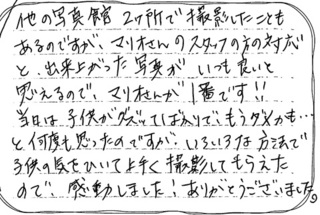 他の写真館2ヶ所で撮影したことも
あるのですが、マリオさんのスタッフの方の対応
と、出来上がった写真が いつも良いと
思えるので、マリオさんが1番です!!
当日は、子供がグズってばかりで、もうダメかも…
と何度も思ったのですが、いろいろな方法で
子供の気をひいて上手く撮影してもらえた
ので、感動しました!ありがとうございました。